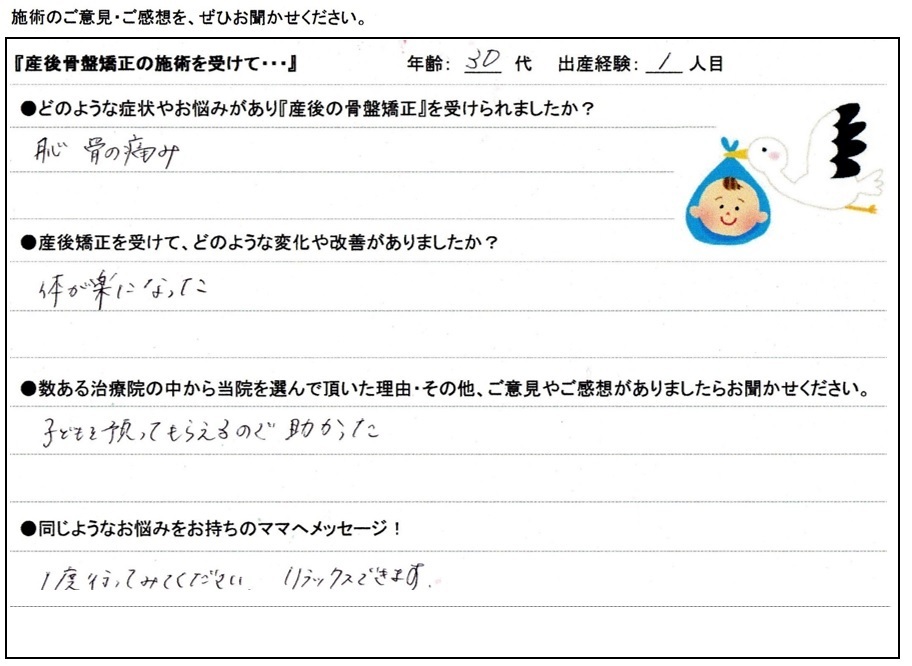 施術のご意見・ご感想を、ぜひお聞かせください。
『産後骨盤矯正の施術を受けて・・・』 年齢: 30 代 出産経験: 1 人目
●どのような症状やお悩みがあり『産後の骨盤矯正』を受けられましたか?
恥骨の痛み
●産後矯正を受けて、どのような変化や改善がありましたか?
体が楽になった
●数ある治療院の中から当院を選んで頂いた理由・その他、ご意見やご感想がありましたらお聞かせください。
子どもを預ってもらえるので助かった
●同じようなお悩みをお持ちのママへメッセージ!
1度行ってみてください. リラックスできます.